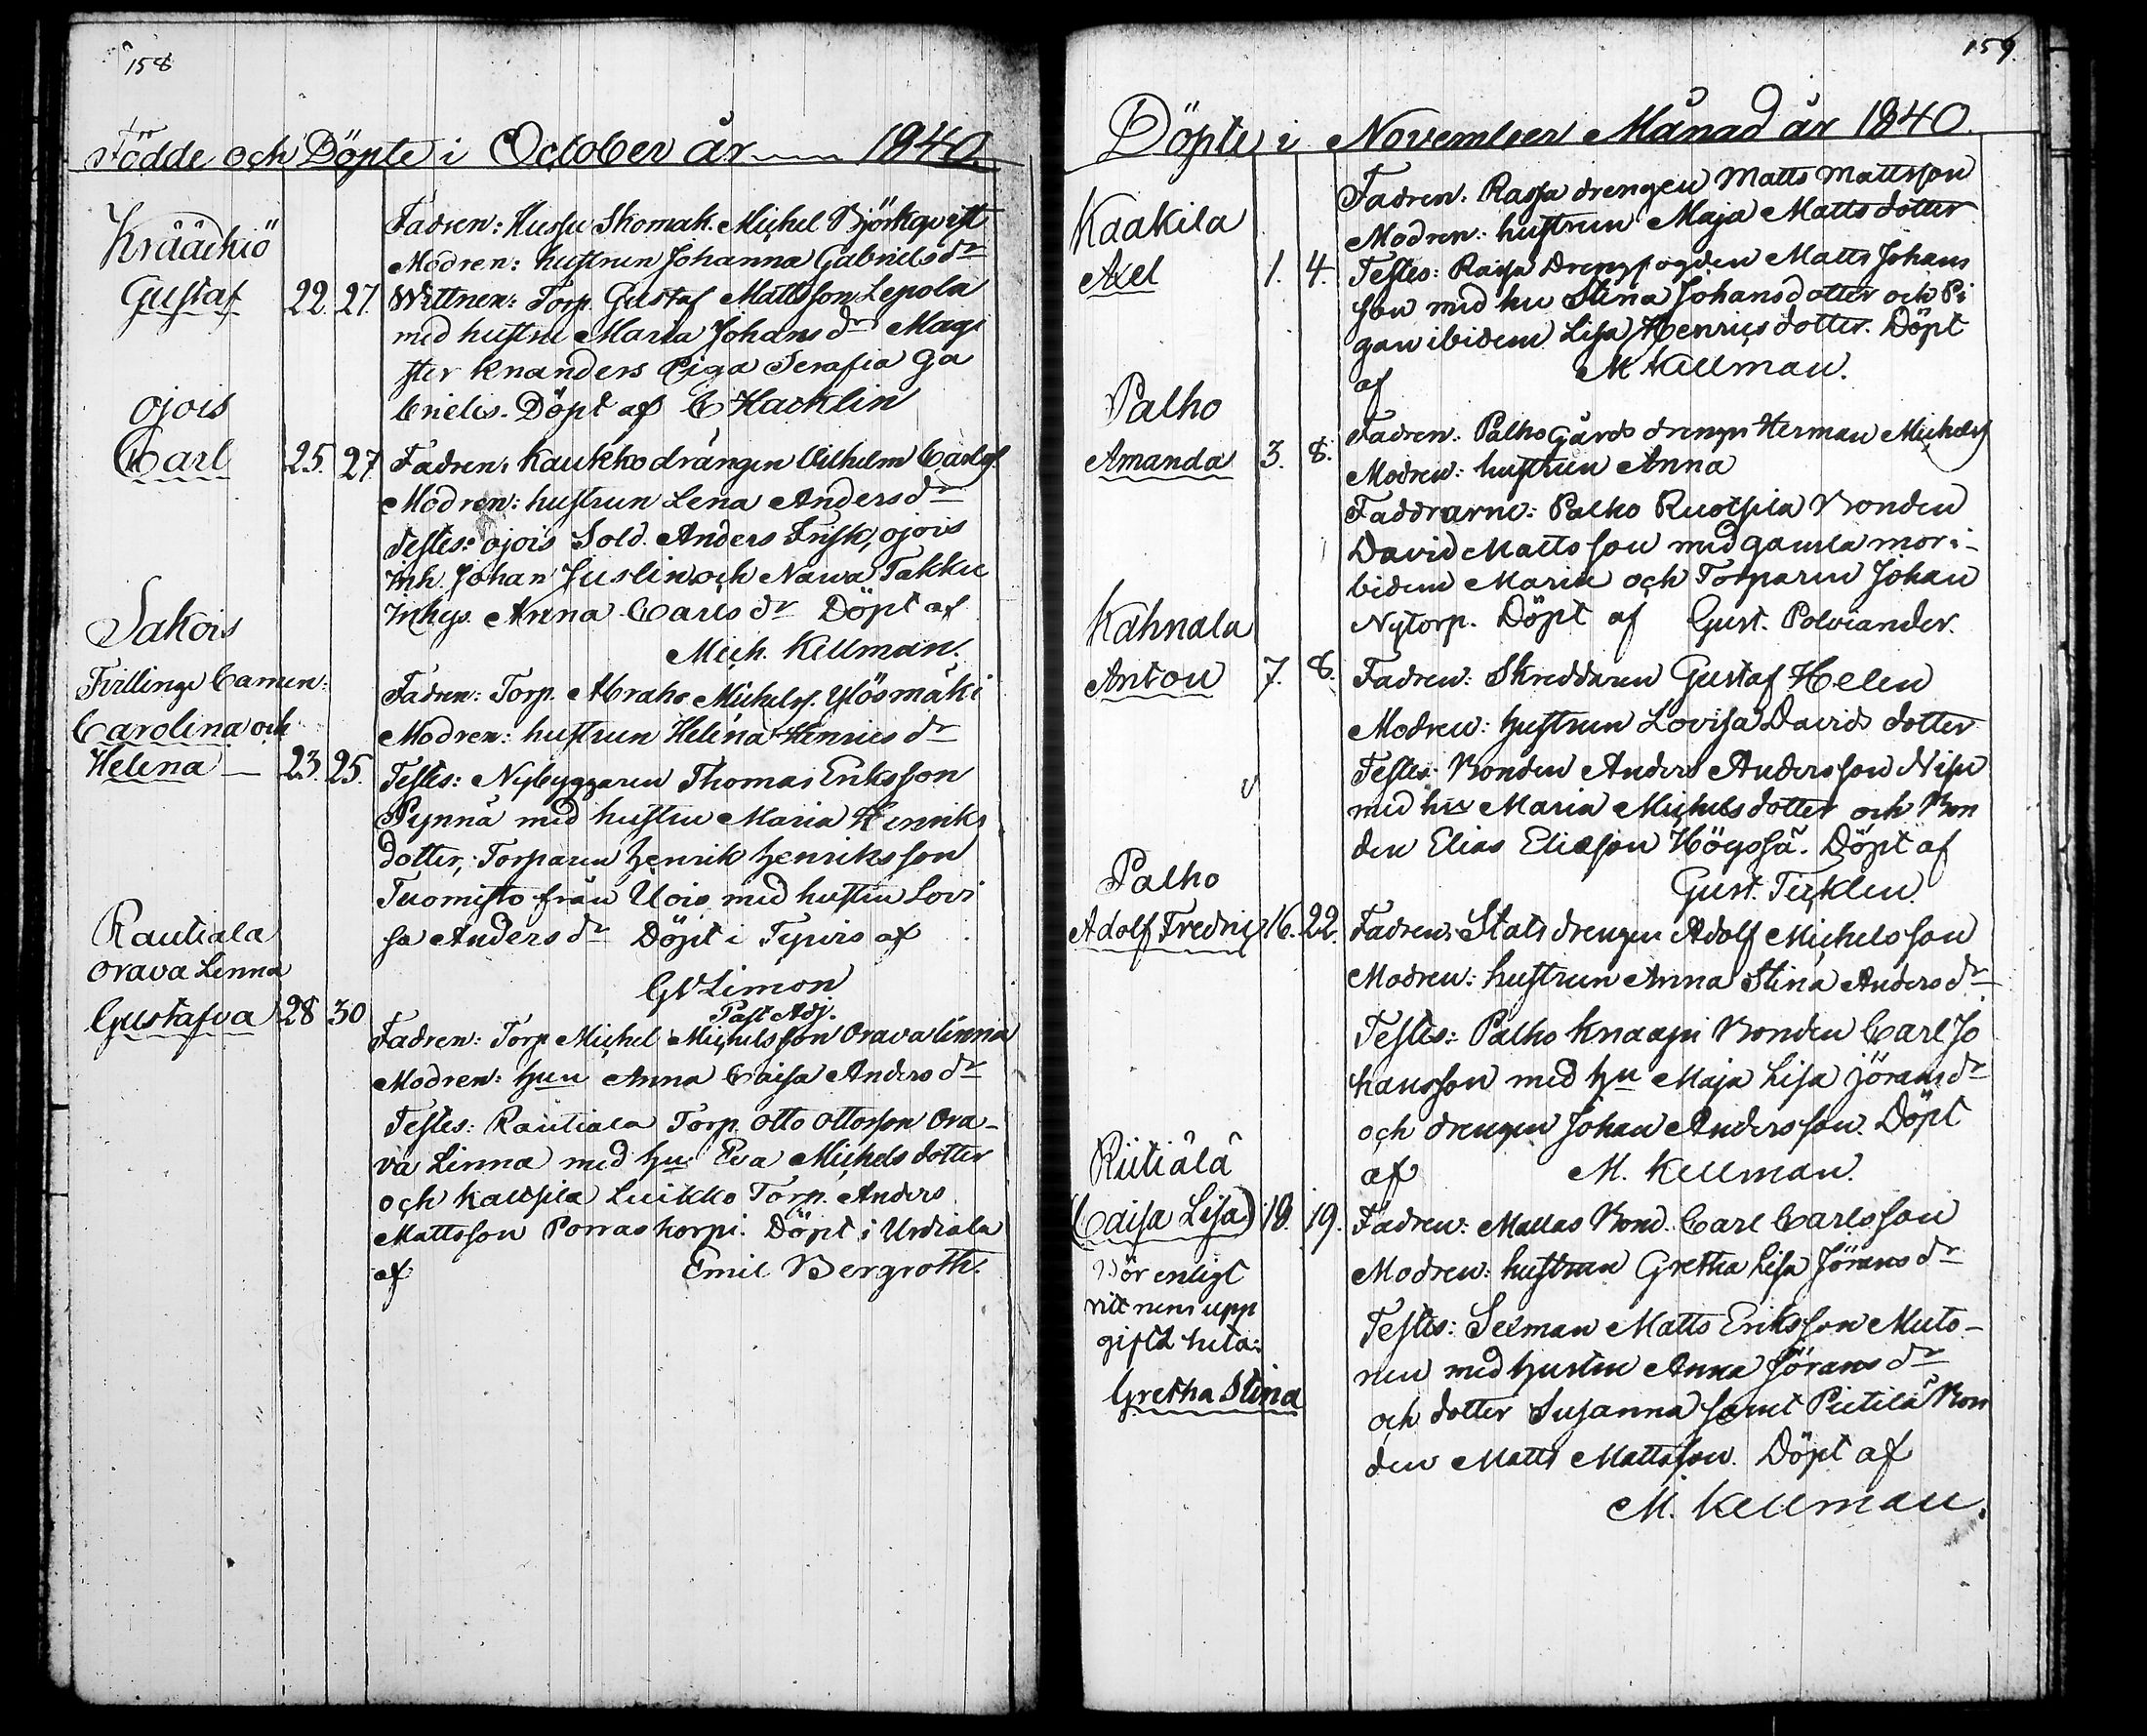 158
Födde och Döpte i October år 1840.
Kräähiö
Gustaf 22. 27.
Fadren: Hussu Skomak. Michel Björkqvist
Modren: hustrun Johanna Gabrielsdr
Wittnen: Torp. Gustaf Mattsson Lepola
med hustru Maria Johansdr Magi
ster Knanders Piga Serafia Ga
brielis. Döpt af C Hacklin
ojois
Carl 25. 27
Fadren: Kaukko drängen Wilhelm Carlss.
Modren: hustrun Lena Andersdr
Testes: ojois Sold. Anders Frisk, ojois
Inh. Johan Juslin och Nawa Takku
Inhys. Anna Carlsdr Döpt af
Mich. Kellman.
Sakois
Tvillinge Barnen:
Carolina och
Helena — 23. 25.
Fadren: Torp. Abrah. Michelss. Ylösmäki
Modren: hustrun Helena Henricsdr
Testes: Nybyggaren Thomas Eriksson
Pynnä med hustru Maria Henriks
dotter, Torparen Henrik Henriksson
Tuomisto från Uois med hustru Lovi
sa Andersdr Döpt i Typris af
GV Limon
Past. Adj.
Rautiala
Orava Linna
Gustafva 28 30
Fadren: Torp Michel Michelsson Oravalinna
Modren: Hun Anna Caisa Andersdr
Testes: Rautiala Torp. Otto Ottosson Ora-
va Linna med Hu Eva Michelsdotter
och Kaupila Luikko Torp. Anders
Mattsson Porraskorpi. Döpt i Urdiala
af Emil Bergroth.
159.
Döpte i November Månad år 1840.
Kaakila
Axel 1. 4.
Fadren: Rapa drengen Matts Mattsson
Modren: hustrun Maja Mattsdotter
Testes: Rapa Drengfogden Matts Johans
son med hu Stina Johansdotter och Pi
gan ibidem Lisa Henricsdotter. Döpt
af M Kellman.
Palho
Amanda 3. 8.
Fadren: Palho Gårds drengen Herman Michelss
Modren: hustrun Anna
Faddrarne: Palho Ruotsila Bonden
David Mattsson med gamla mor i-
bidem Maria och Torparen Johan
Nytorp. Döpt af Gust. Polviander.
Kahnala
Anton 7. 8.
Fadren: Skreddaren Gustaf Helen
Modren: Hustrun Lovisa Davids dotter
Testes: Bonden Anders Andersson Nisu
med hu Maria Michelsdotter och Bon
den Elias Eliasson Högsså. Döpt af
Gust. Ticklen.
Palho
Adolf Fredric 16. 22.
Fadren: Stats drengen Adolf Michelsson
Modren: hustrun Anna Stina Andersdr
Testes: Palho Knaapi Bonden Carl Jo
hansson med Hu Maja Lisa Jöransdr
och drengen Johan Andersson. Döpt
af M. Kellman.
Riitiälä
(Caisa Lisa) 18. 19.
Bör enligt
vittnens upp
gift heta:
Gretha Stina
Fadren: Mallas Bond. Carl Carlsson
Modren: hustrun Gretha Lisa Jöransdr
Testes: Seeman Matts Eriksson Muto-
nen med Hustru Anna Jöransdr
och dotter Susanna samt Pietilä Bon
den Matts Mattsson. Döpt af
M. Kellman.